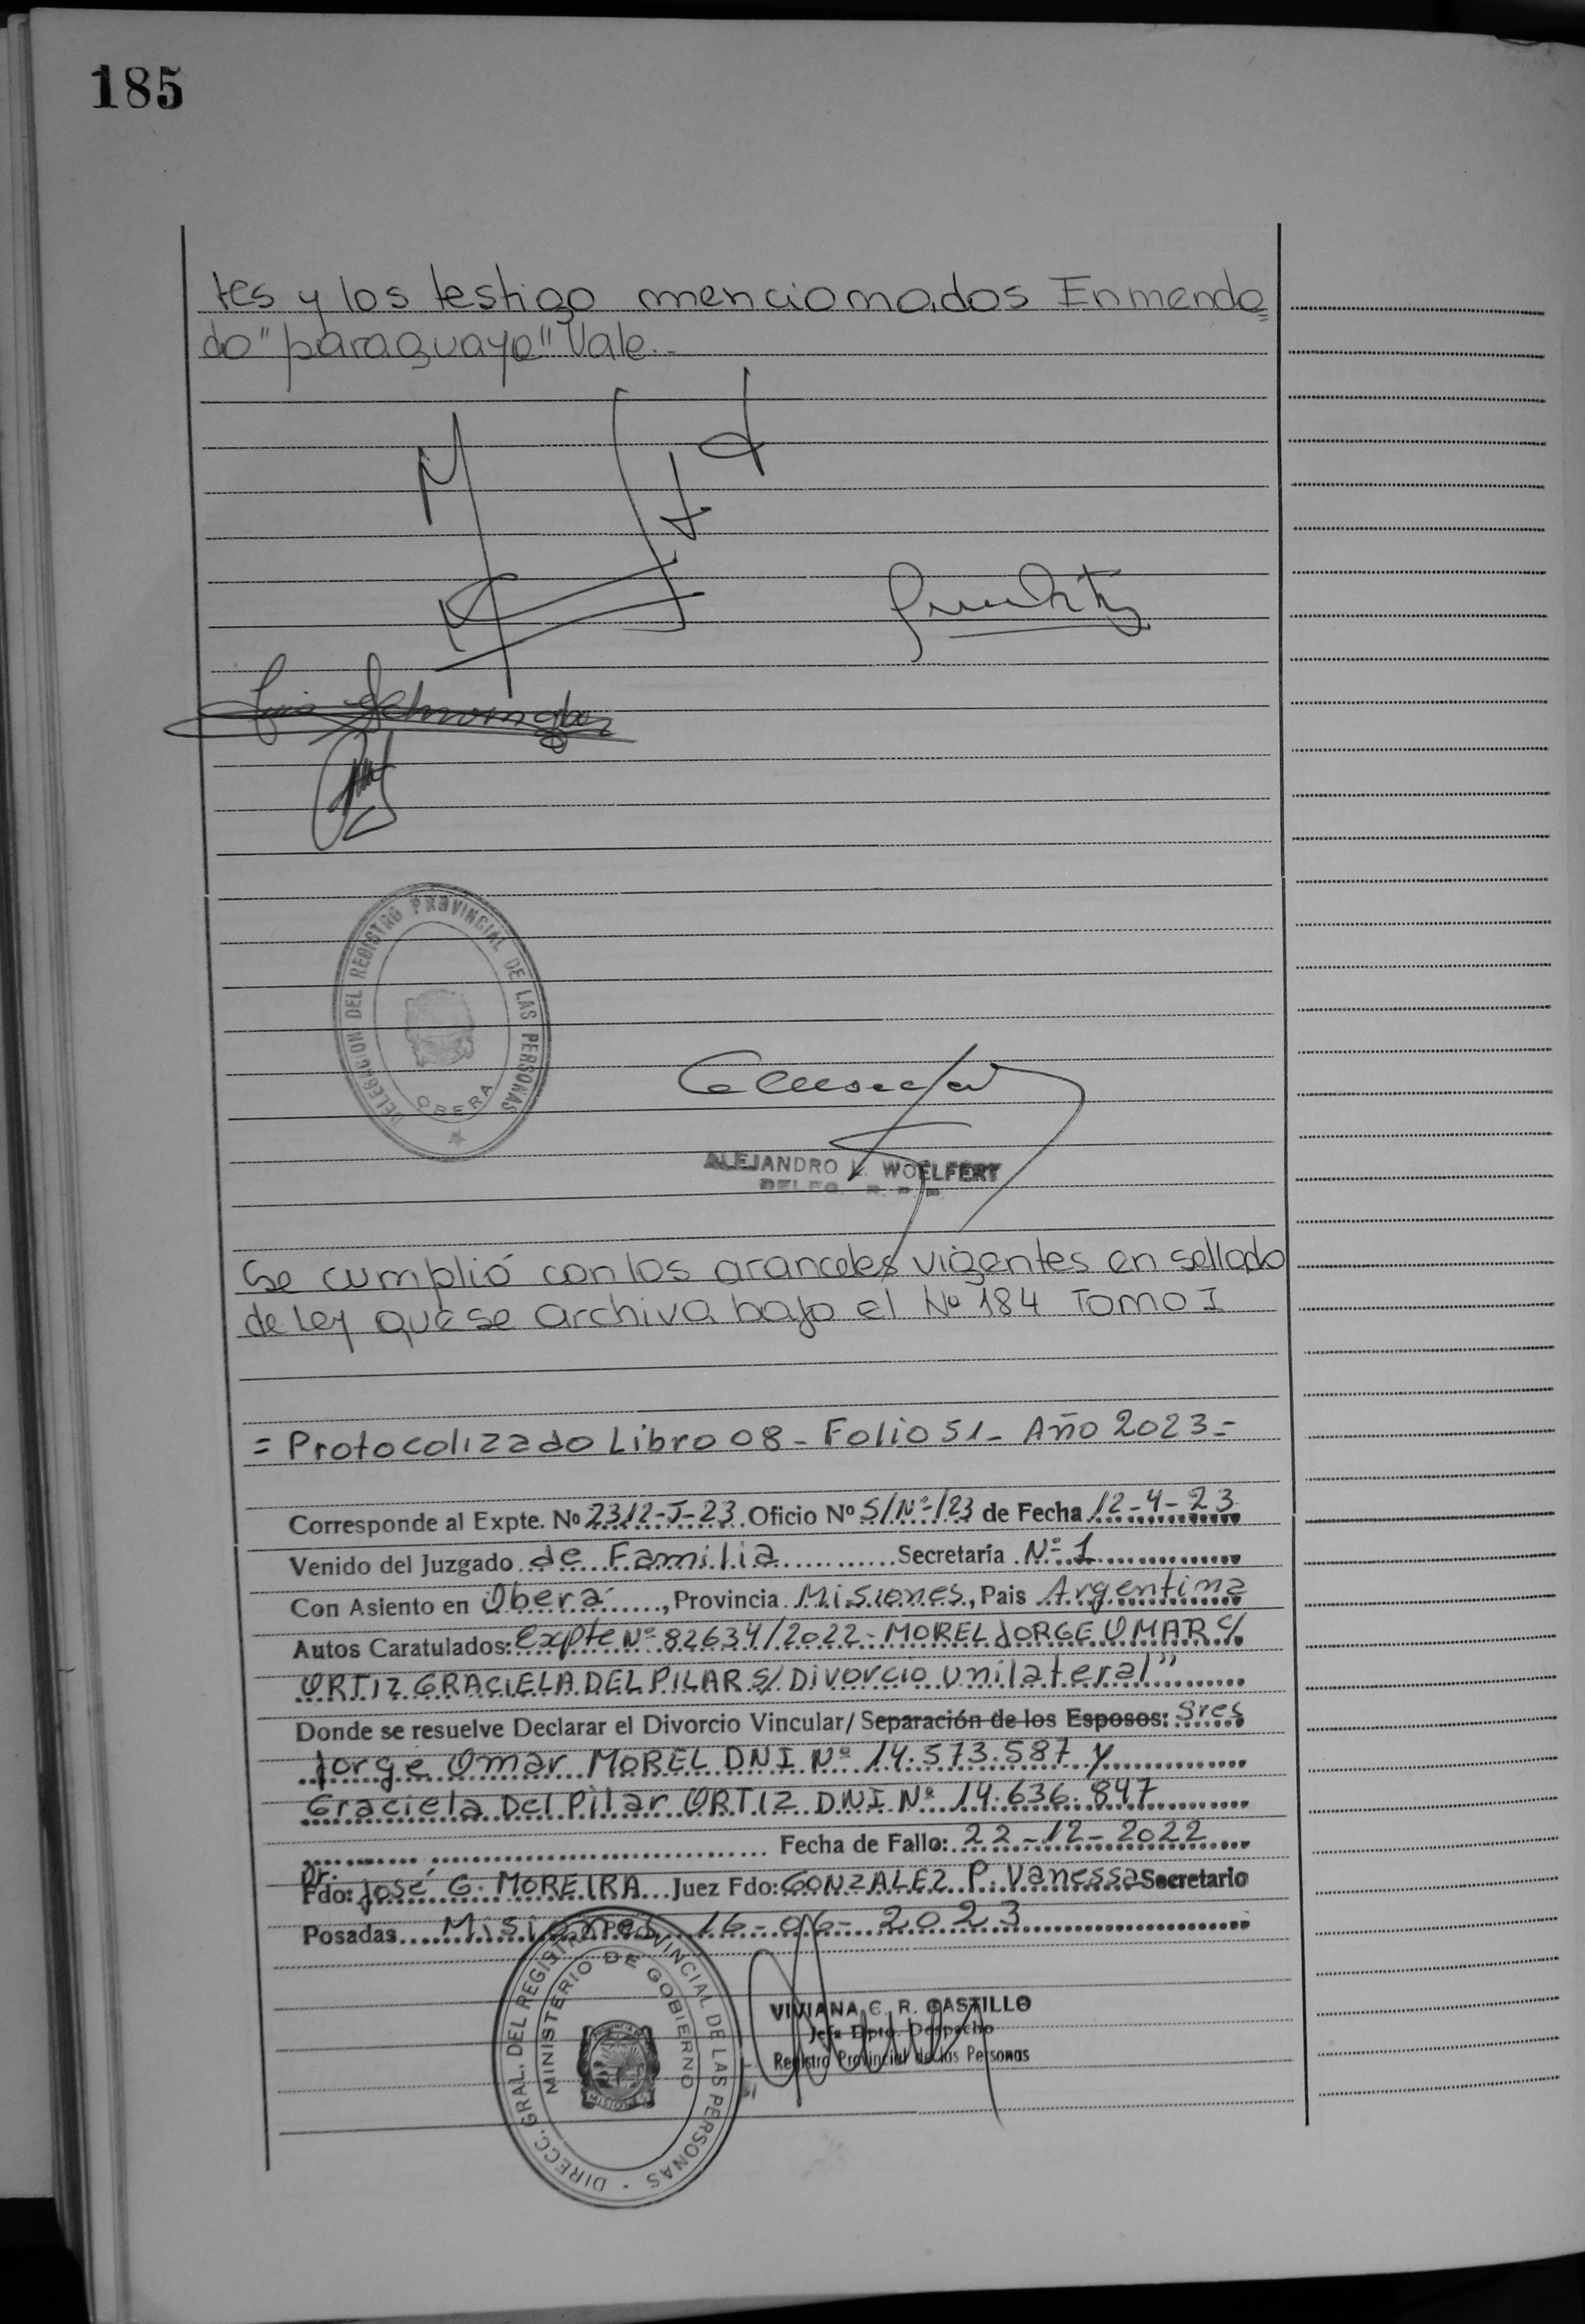 185
tes y los testigo mencionados Enmenda=
do "paraguayo" Vale.-
Luis Schwingler
DELEGACION DEL REGISTRO PROVINCIAL DE LAS PERSONAS
OBERA
ALEJANDRO L. WOELFERT
DELEG. R. P.
Se cumplió con los aranceles vigentes en sellado
de Ley que se archiva bajo el Nº 184 Tomo I
= Protocolizado Libro 08 - Folio 51 - Año 2023 =
Corresponde al Expte. Nº 2312-J-23. Oficio Nº S/Nº/23 de Fecha 12-4-23
Venido del Juzgado de Familia Secretaría Nº 1
Con Asiento en Oberá, Provincia Misiones, Pais Argentina
Autos Caratulados: Expte Nº 82634/2022 - MOREL JORGE OMAR C/
ORTIZ GRACIELA DEL PILAR S/ Divorcio Unilateral"
Donde se resuelve Declarar el Divorcio Vincular/ Separación de los Esposos: Sres
Jorge Omar MOREL DNI Nº 14.573.587 y
Graciela Del Pilar ORTIZ DNI Nº 14.636.847
Fecha de Fallo: 22-12-2022
Fdo: Dr. José G. MOREIRA Juez Fdo: GONZALEZ P. Vanessa Secretario
Posadas Misiones 16-06-2023
DIRECC. GRAL. DEL REGISTRO PROVINCIAL DE LAS PERSONAS
MINISTERIO DE GOBIERNO
MISIONES
VIVIANA C. R. CASTILLO
Jefa Dpto. Despacho
Registro Provincial de las Personas